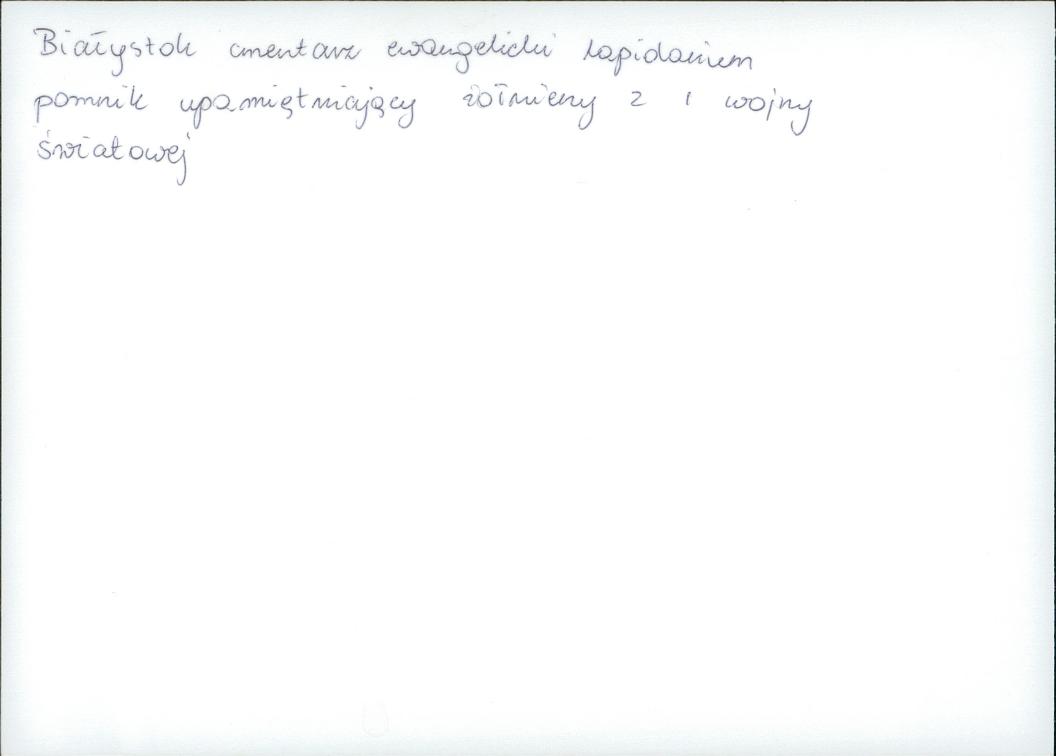 Białystok cmentarz ewangelicki lapidarium
pomnik upamiętniający żołnierzy z I wojny
światowej